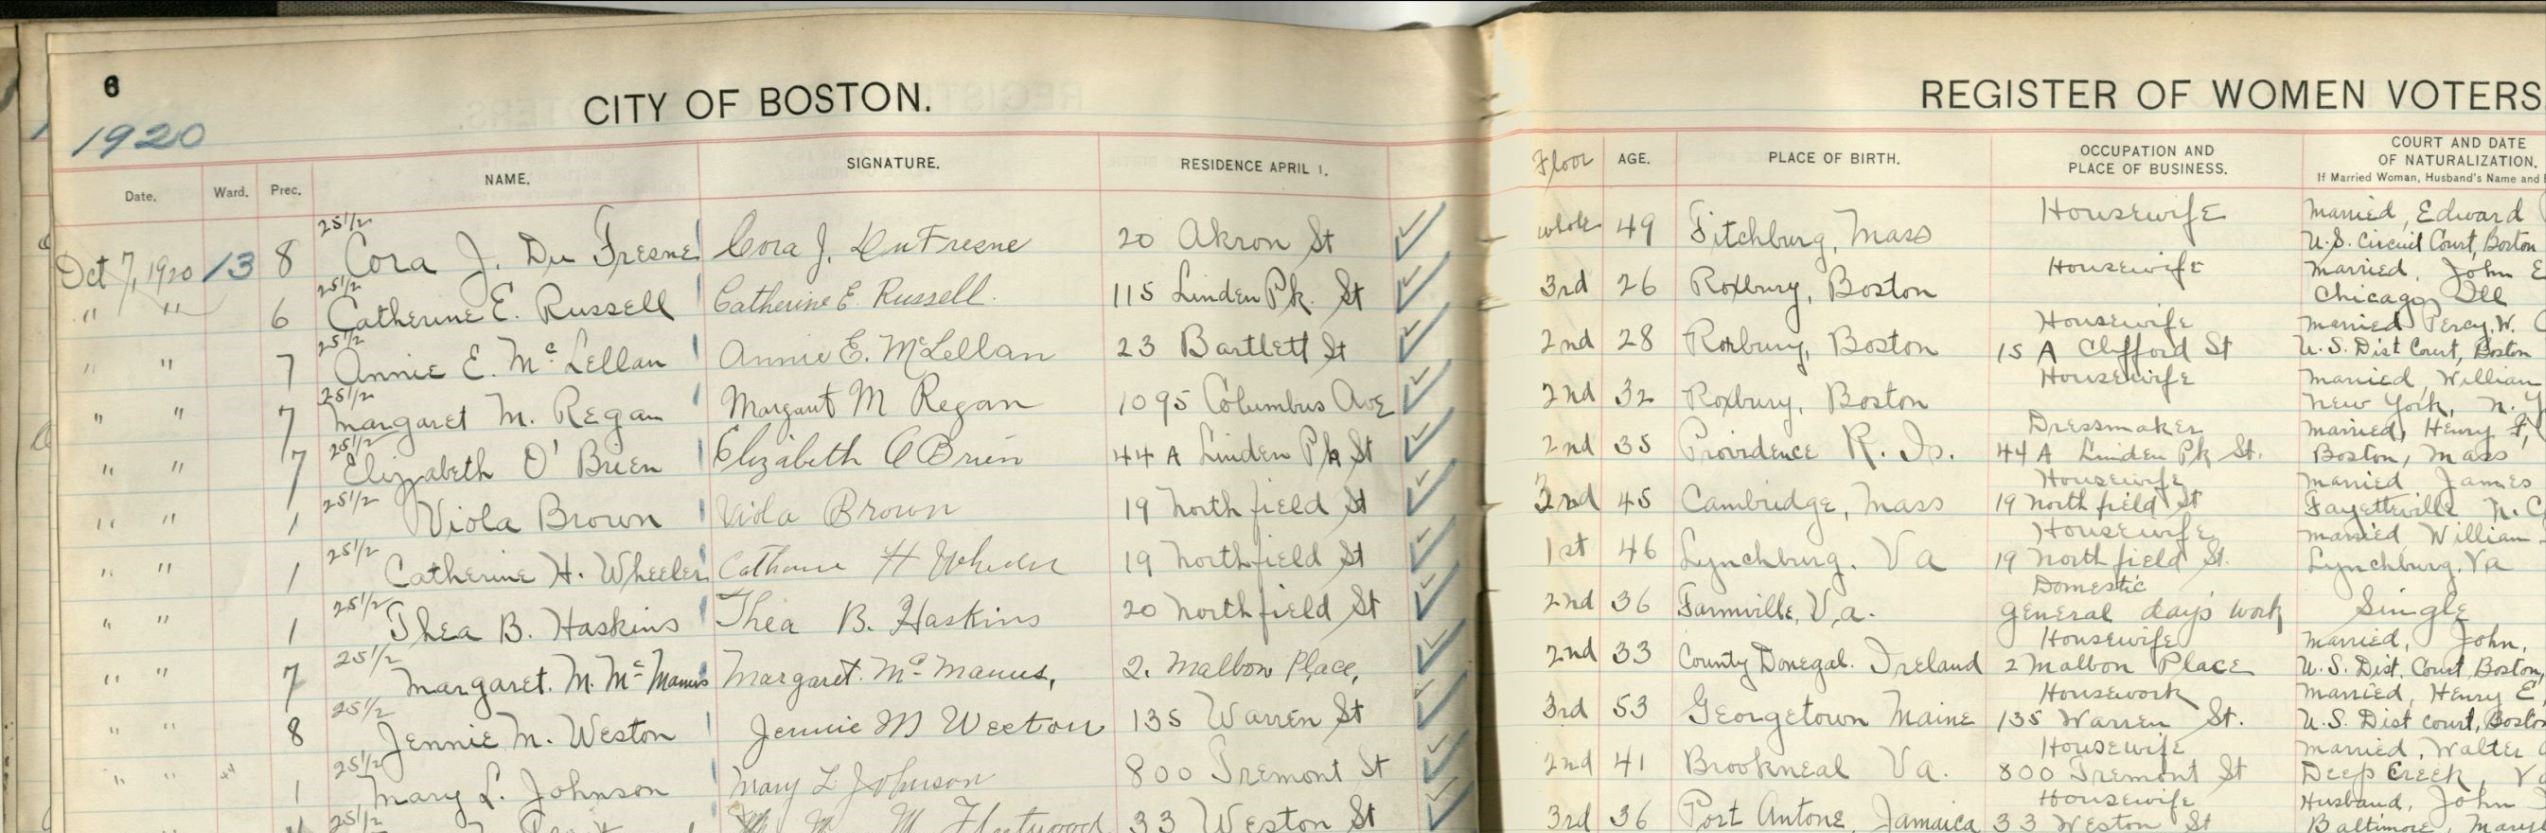 6
CITY OF BOSTON.
REGISTER OF WOMEN VOTERS
1920
Date. Ward. Prec. NAME. SIGNATURE. RESIDENCE APRIL 1. Floor AGE. PLACE OF BIRTH. OCCUPATION AND PLACE OF BUSINESS. COURT AND DATE OF NATURALIZATION. If Married Woman, Husband's Name and
Oct 7, 1920 13 8 25 1/2 Cora J. Du Fresne Cora J. DuFresne 20 Akron St whole 49 Fitchburg, Mass Housewife Married, Edward U.S. Circuit Court, Boston
" " 6 25 1/2 Catherine E. Russell Catherine E. Russell. 115 Linden Pk. St 3rd 26 Roxbury, Boston Housewife Married, John E Chicago Ill
" " 7 25 1/2 Annie E. McLellan Annie E. McLellan 23 Bartlett St 2nd 28 Roxbury, Boston Housewife 15 A Clifford St Married Percy W. U.S. Dist Court, Boston
" " 7 25 1/2 Margaret M. Regan Margaret M Regan 1095 Columbus Ave 2nd 32 Roxbury, Boston Housewife Married, William New York, N.Y
" " 7 25 1/2 Elizabeth O'Brien Elizabeth O'Brien 44 A Linden Pk St 2nd 35 Providence R. Is. Dressmaker 44 A Linden Pk St. Married, Henry F, Boston, Mass
" " 1 25 1/2 Viola Brown Viola Brown 19 Northfield St 2nd 45 Cambridge, Mass Housewife 19 Northfield St Married James Fayetteville N.C
" " 1 25 1/2 Catherine H. Wheeler Catherine H Wheeler 19 Northfield St 1st 46 Lynchburg, Va Housewife 19 Northfield St. Married William Lynchburg, Va
" " 1 25 1/2 Thea B. Haskins Thea B. Haskins 20 Northfield St 2nd 36 Farmville, Va. Domestic General days work Single
" " 7 25 1/2 Margaret. M. McManus Margaret. McManus, 2. Malbon Place, 2nd 33 County Donegal. Ireland Housewife 2 Malbon Place Married, John, U.S. Dist. Court Boston,
" " 8 25 1/2 Jennie M. Weston Jennie M Weston 135 Warren St 3rd 53 Georgetown Maine Housework 135 Warren St. Married, Henry E U.S. Dist Court, Boston
" " " 1 25 1/2 Mary L. Johnson Mary L Johnson 800 Tremont St 2nd 41 Brookneal Va. Housewife 800 Tremont St Married, Walter Deep Creek, Va
25 1/2 M Fleetwood 33 Weston St 3rd 36 Port Antone, Jamaica Housewife 33 Weston St Husband, John Baltimore, Mary